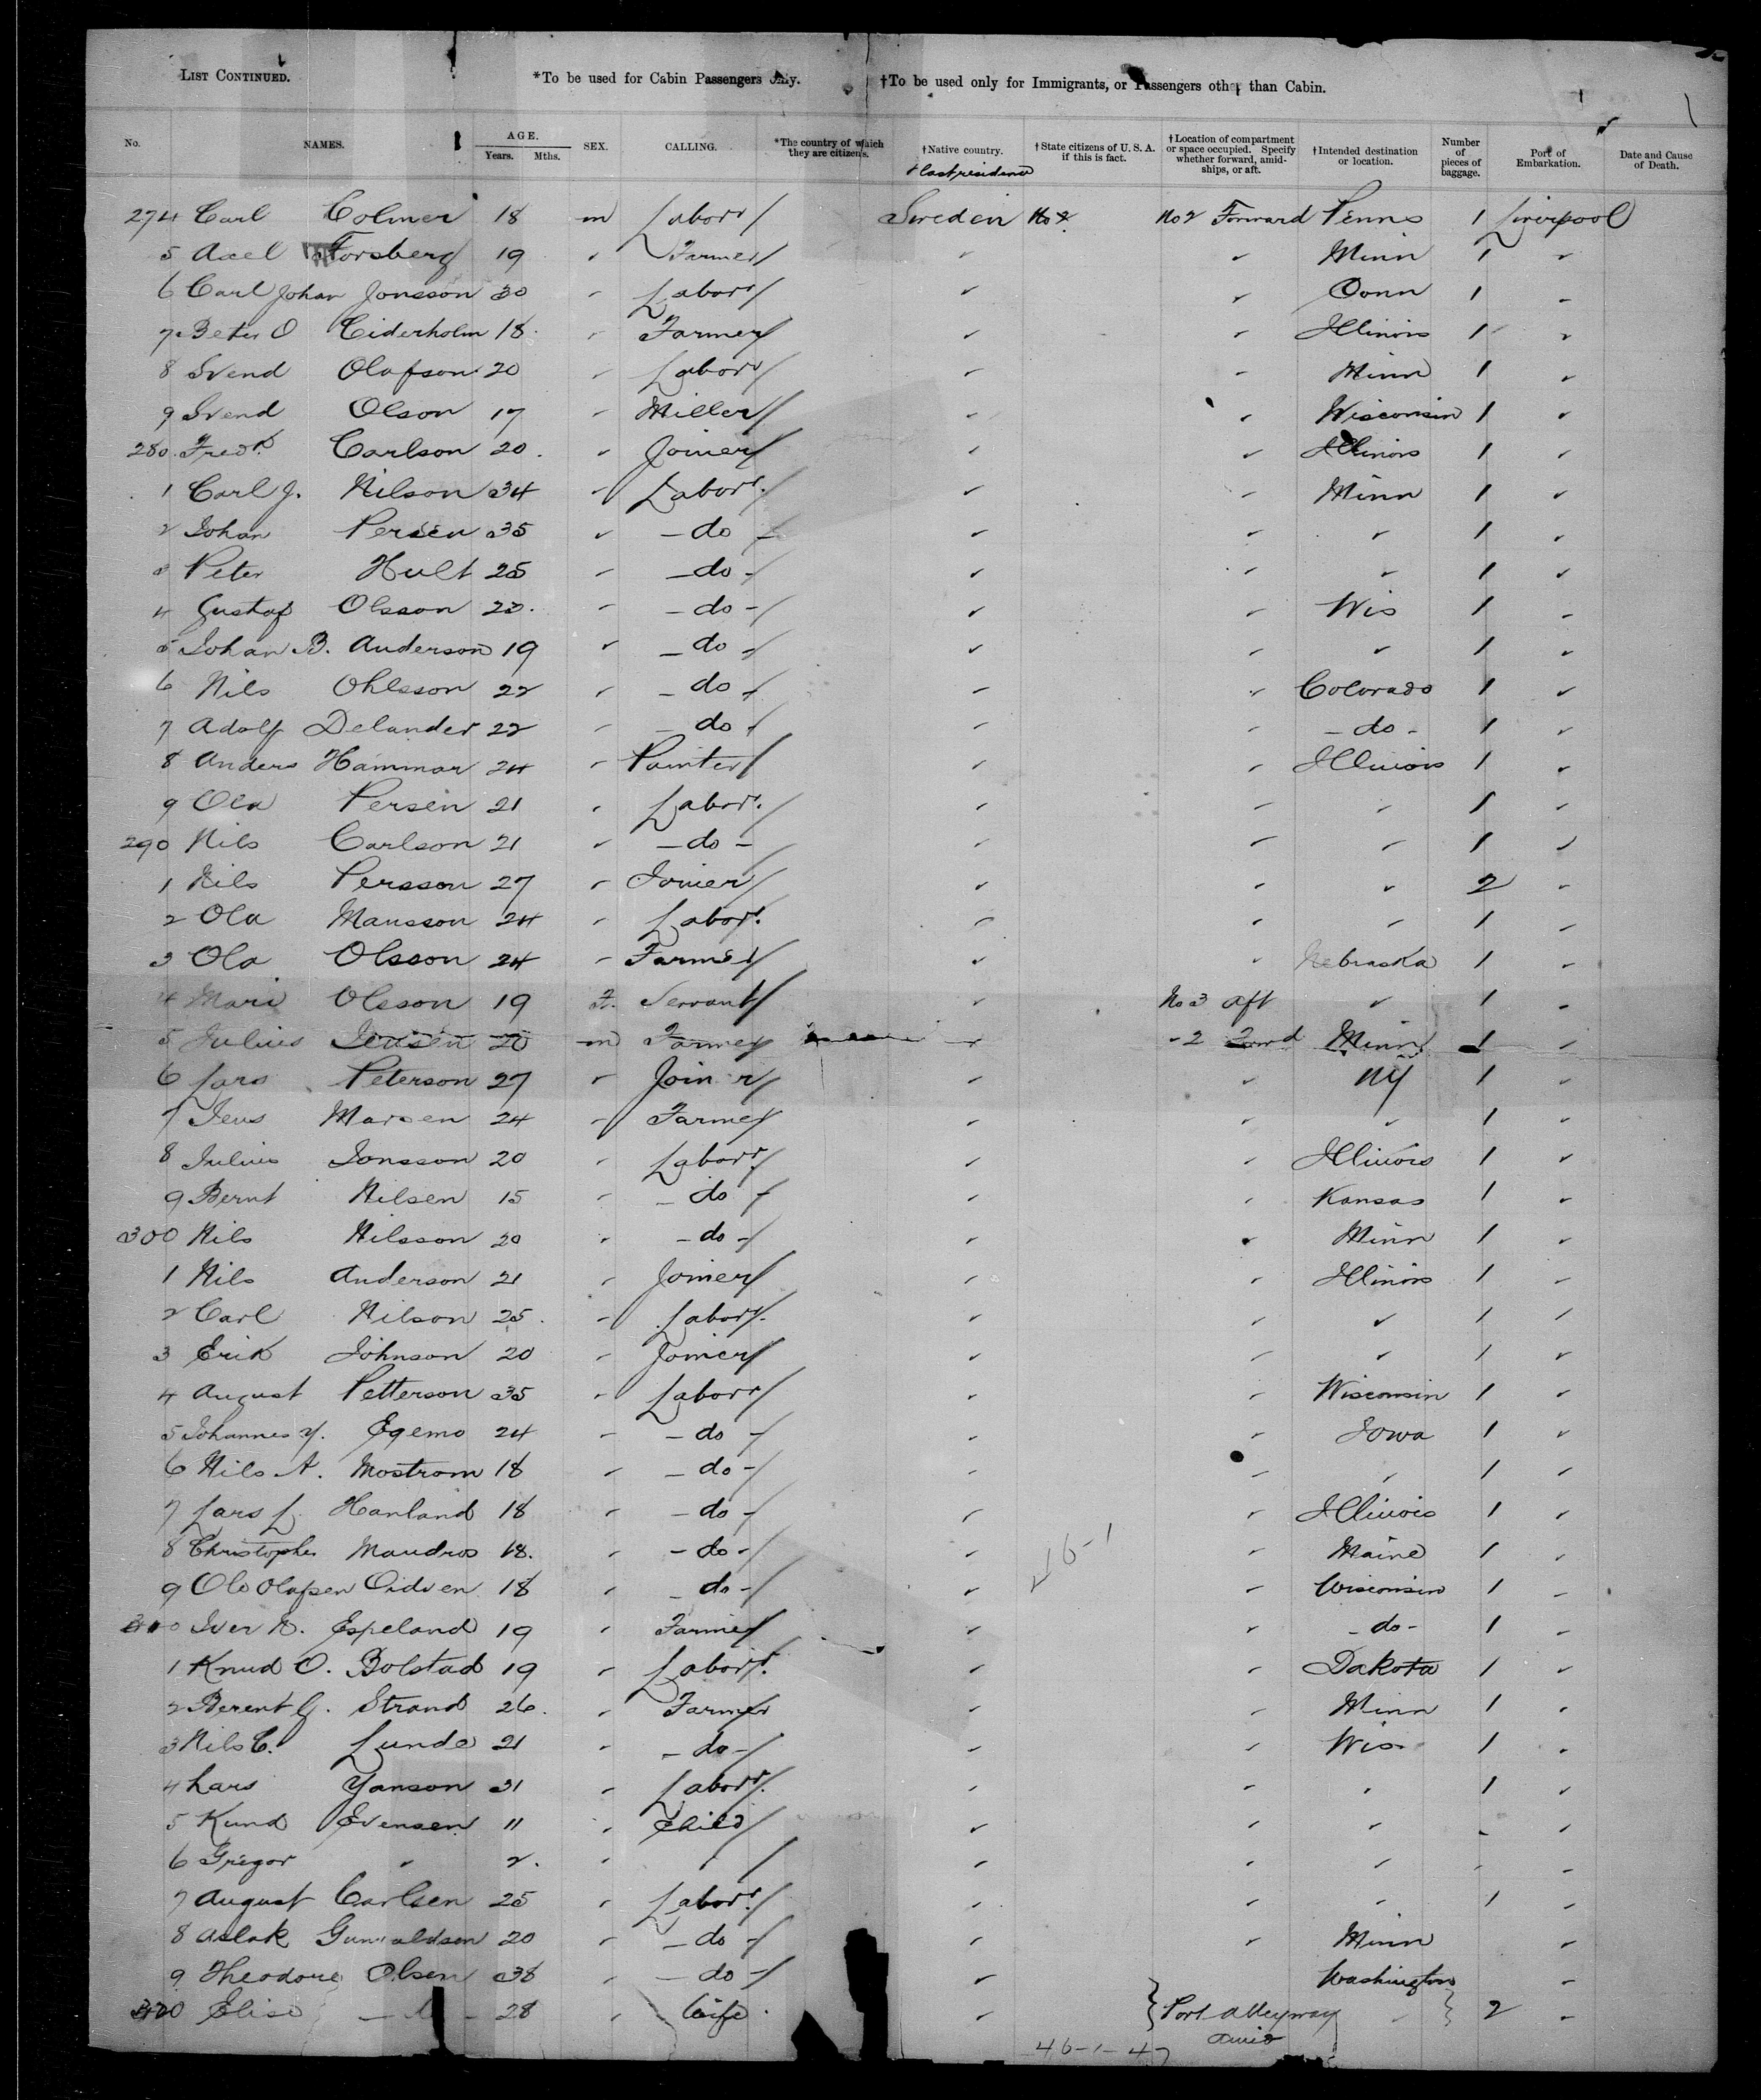 LIST CONTINUED. *To be used for Cabin Passengers Only. †To be used only for Immigrants, or Passengers other than Cabin.
No. NAMES. AGE. Years. Mths. SEX. CALLING. *The country of which they are citizens. †Native country. †State citizens of U. S. A. if this is fact. †Location of compartment or space occupied. Specify whether forward, amidships, or aft. †Intended destination or location. Number of pieces of baggage. Port of Embarkation. Date and Cause of Death.
† Last residence
274 Carl Colmer 18 m Labor Sweden No 2 No 2 Forward Penns 1 Liverpool
5 Axel Forsberg 19 Farmer Minn 1
6 Carl Johan Jonsson 30 Labor Conn 1
7 Peter O Ciderholm 18 Farmer Illinois 1
8 Svend Olafson 20 Labor Minn 1
9 Svend Olson 17 Miller Wisconsin 1
280 Fredk Carlson 20 Joiner Illinois 1
1 Carl J. Nilson 34 Labor Minn 1
2 Johan Persen 35 - do - 1
3 Peter Hult 25 - do - 1
4 Gustaf Olsson 20 - do - Wis 1
5 Johan B. Anderson 19 - do - 1
6 Nils Ohlsson 22 - do - Colorado 1
7 Adolf Delander 22 - do - - do - 1
8 Anders Hammar 24 Painter Illinois 1
9 Ola Persen 21 Labor 1
290 Nils Carlson 21 - do - 1
1 Nils Persson 27 Joiner 2
2 Ola Mansson 24 Labor 1
3 Ola Olsson 24 Farmer Nebraska 1
4 Mari Olsson 19 F. Servant No 3 aft 1
5 Julius Jensen 20 m Farmer - 2 Forwd Minn 1
6 Lars Peterson 27 Joiner NY 1
7 Jens Marsen 24 Farmer 1
8 Julius Jonsson 20 Labor Illinois 1
9 Bernt Nilsen 15 - do - Kansas 1
300 Nils Nilsson 20 - do - Minn 1
1 Nils Anderson 21 Joiner Illinois 1
2 Carl Nilson 25 Labor 1
3 Erik Johnson 20 Joiner 1
4 August Petterson 35 Labor Wisconsin 1
5 Johannes Y. Egemo 24 - do - Iowa 1
6 Nils A. Mostrom 18 - do - 1
7 Lars L. Hanland 18 - do - Illinois 1
8 Christopher Maudros 18 - do - Maine 1
9 Ole Olafsen Eidsen 18 - do - Wisconsin 1
310 Iver N. Espeland 19 Farmer - do - 1
1 Knud O. Bolstad 19 Labor Dakota 1
2 Berent G. Strand 26 Farmer Minn 1
3 Nils C. Lunde 21 - do - Wis 1
4 Lars Yanson 31 Labor 1
5 Kund Evensen 11 Child
6 Gregor 2
7 August Carlsen 25 Labor 1
8 Aslak 20 - do - Minn
9 Theodore Olsen 38 - do - Washington
320 Elise 28 Wife } Port alleyway } 2
46-1-47